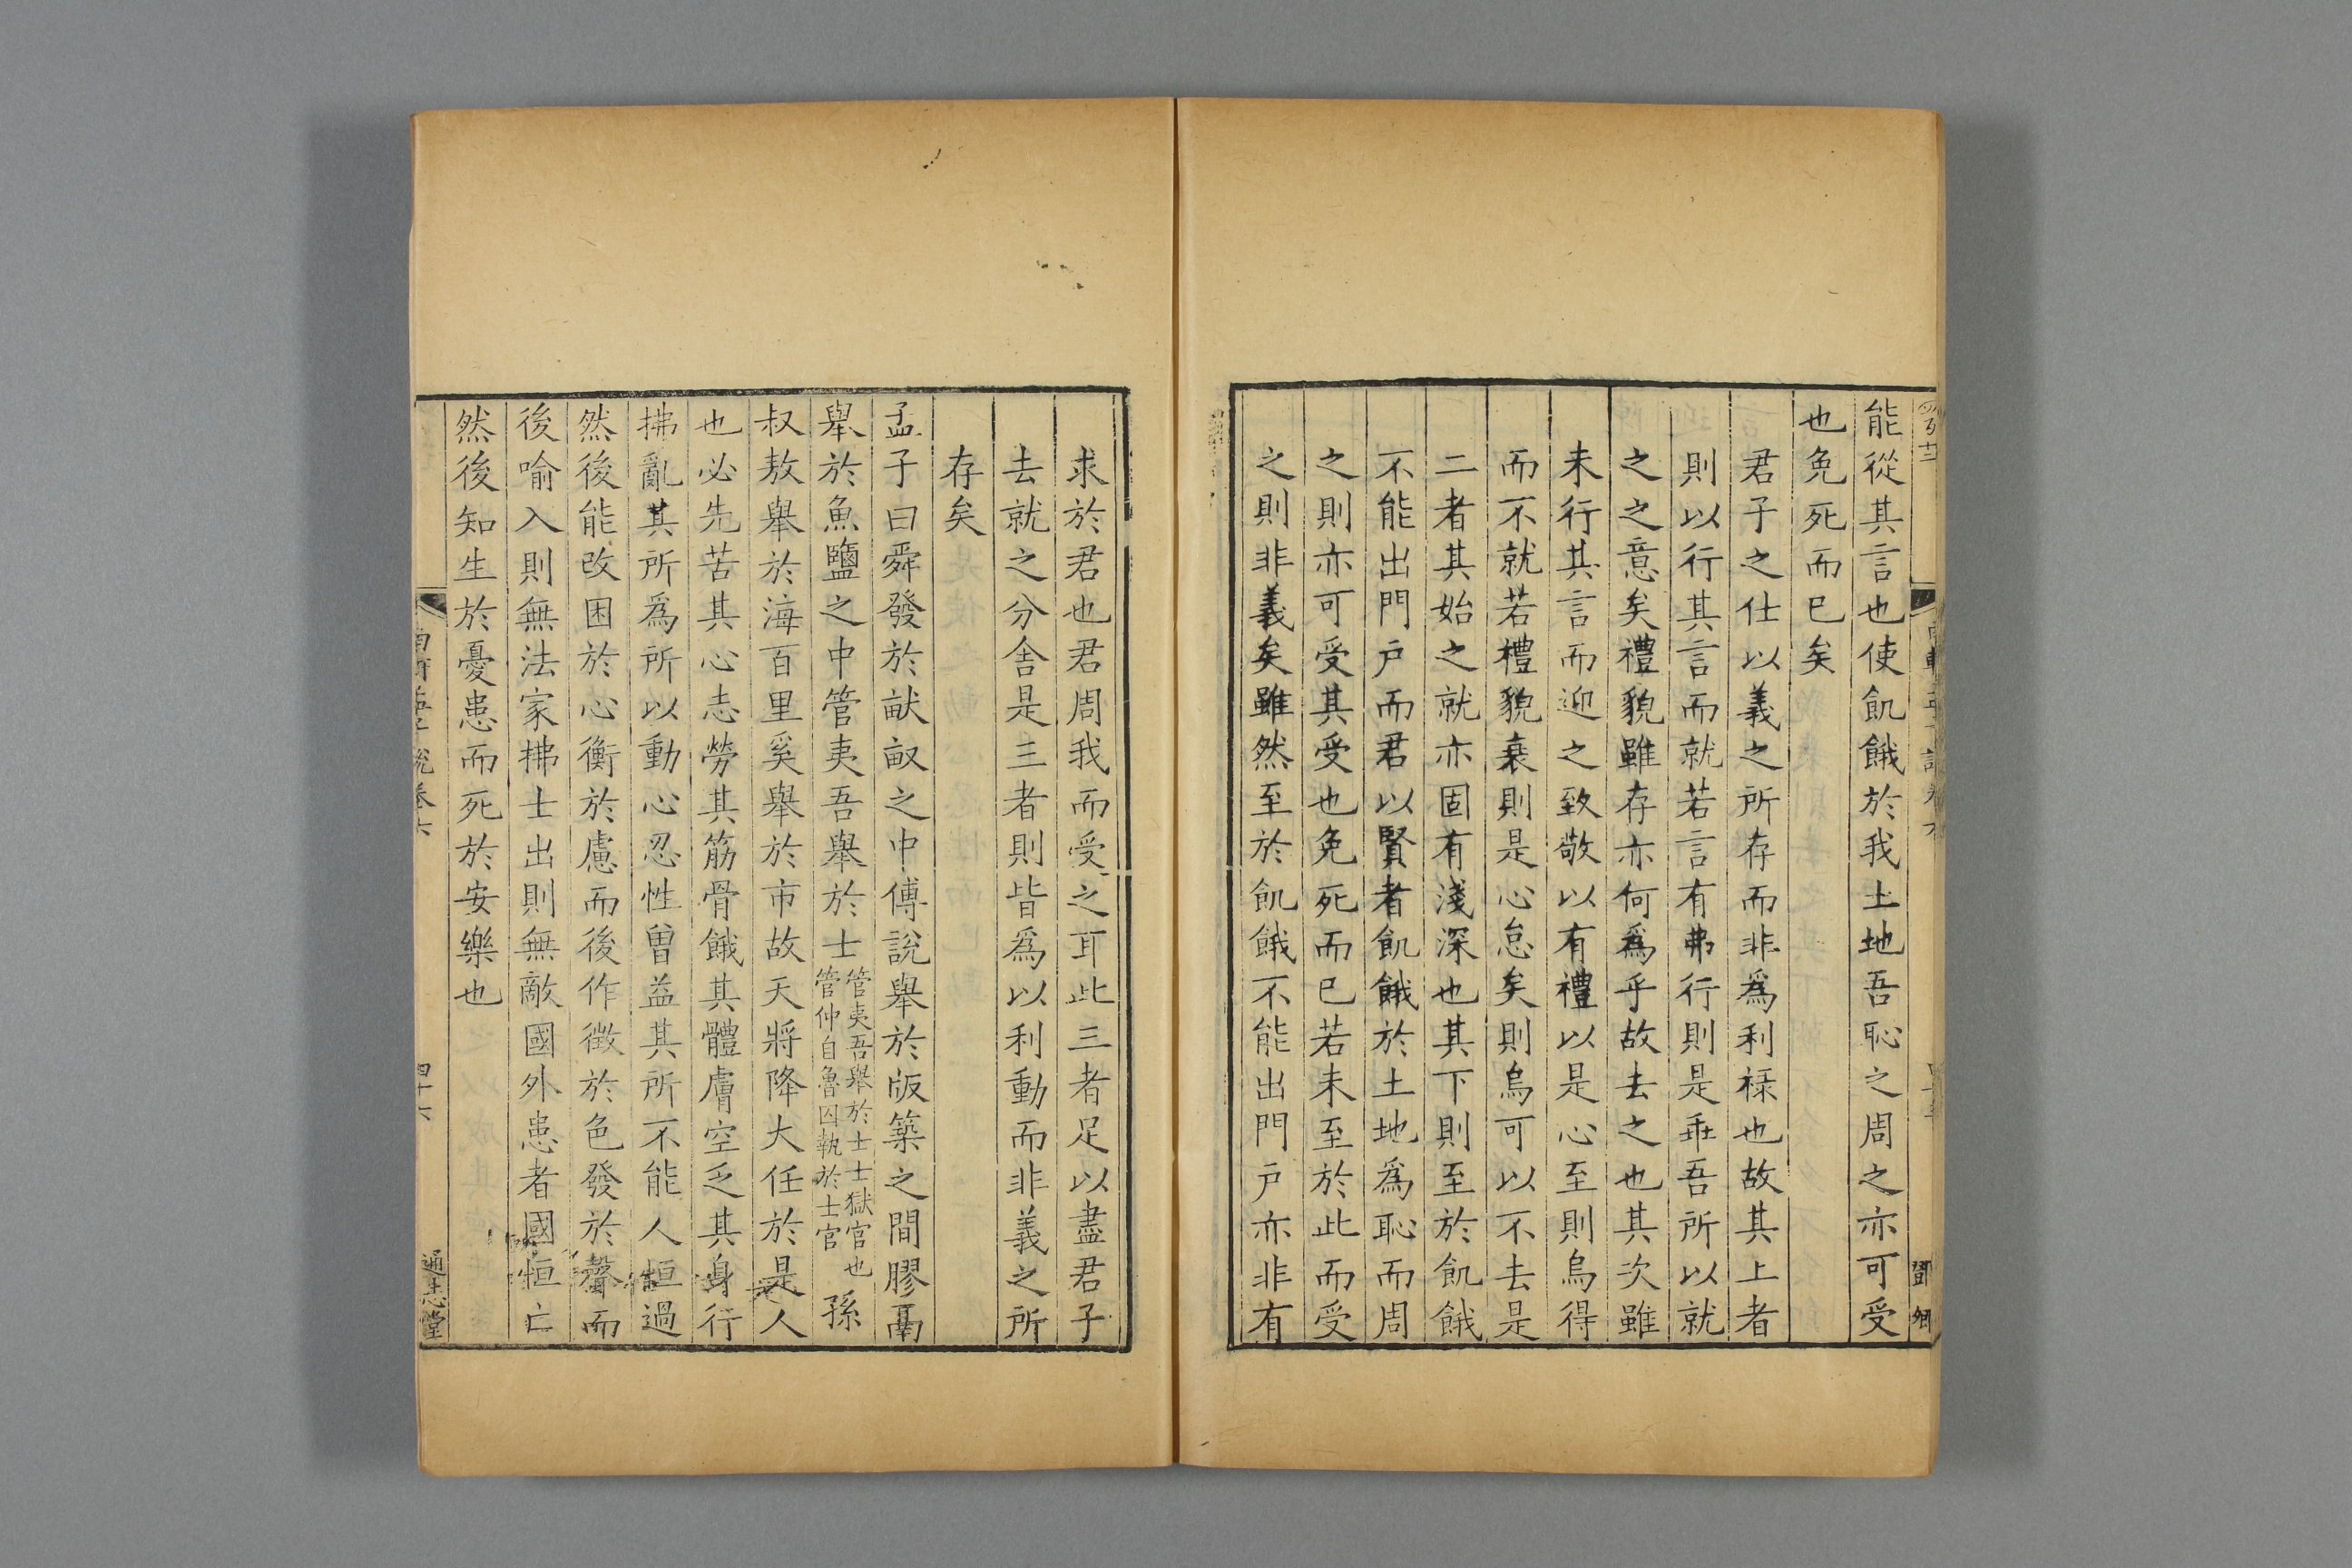 能從其言也使飢餓於我土地吾恥之周之亦可受
也免死而已矣
君子之仕以義之所存而非爲利祿也故其上者
則以行其言而就若言有弗行則是乖吾所以就
之之意矣禮貌雖存亦何爲乎故去之也其次雖
未行其言而迎之致敬以有禮以是心至則烏得
而不就若禮貌衰則是心怠矣則烏可以不去是
二者其始之就亦固有淺深也其下則至於飢餓
不能出門戶而君以賢者飢餓於土地爲恥而周
之則亦可受其受也免死而已若未至於此而受
之則非義矣雖然至於飢餓不能出門戶亦非有
求於君也君周我而受之耳此三者足以盡君子
去就之分舍是三者則皆爲以利動而非義之所
存矣
孟子曰舜發於畎畝之中傅說舉於版築之間膠鬲
舉於魚鹽之中管夷吾舉於士管夷吾舉於士士獄官也管仲自魯囚執於士官孫
叔敖舉於海百里奚舉於市故天將降大任於是人
也必先苦其心志勞其筋骨餓其體膚空乏其身行
拂亂其所爲所以動心忍性曾益其所不能人恒過
然後能改困於心衡於慮而後作徵於色發於聲而
後喻入則無法家拂士出則無敵國外患者國恒亡
然後知生於憂患而死於安樂也
四十六
通志堂